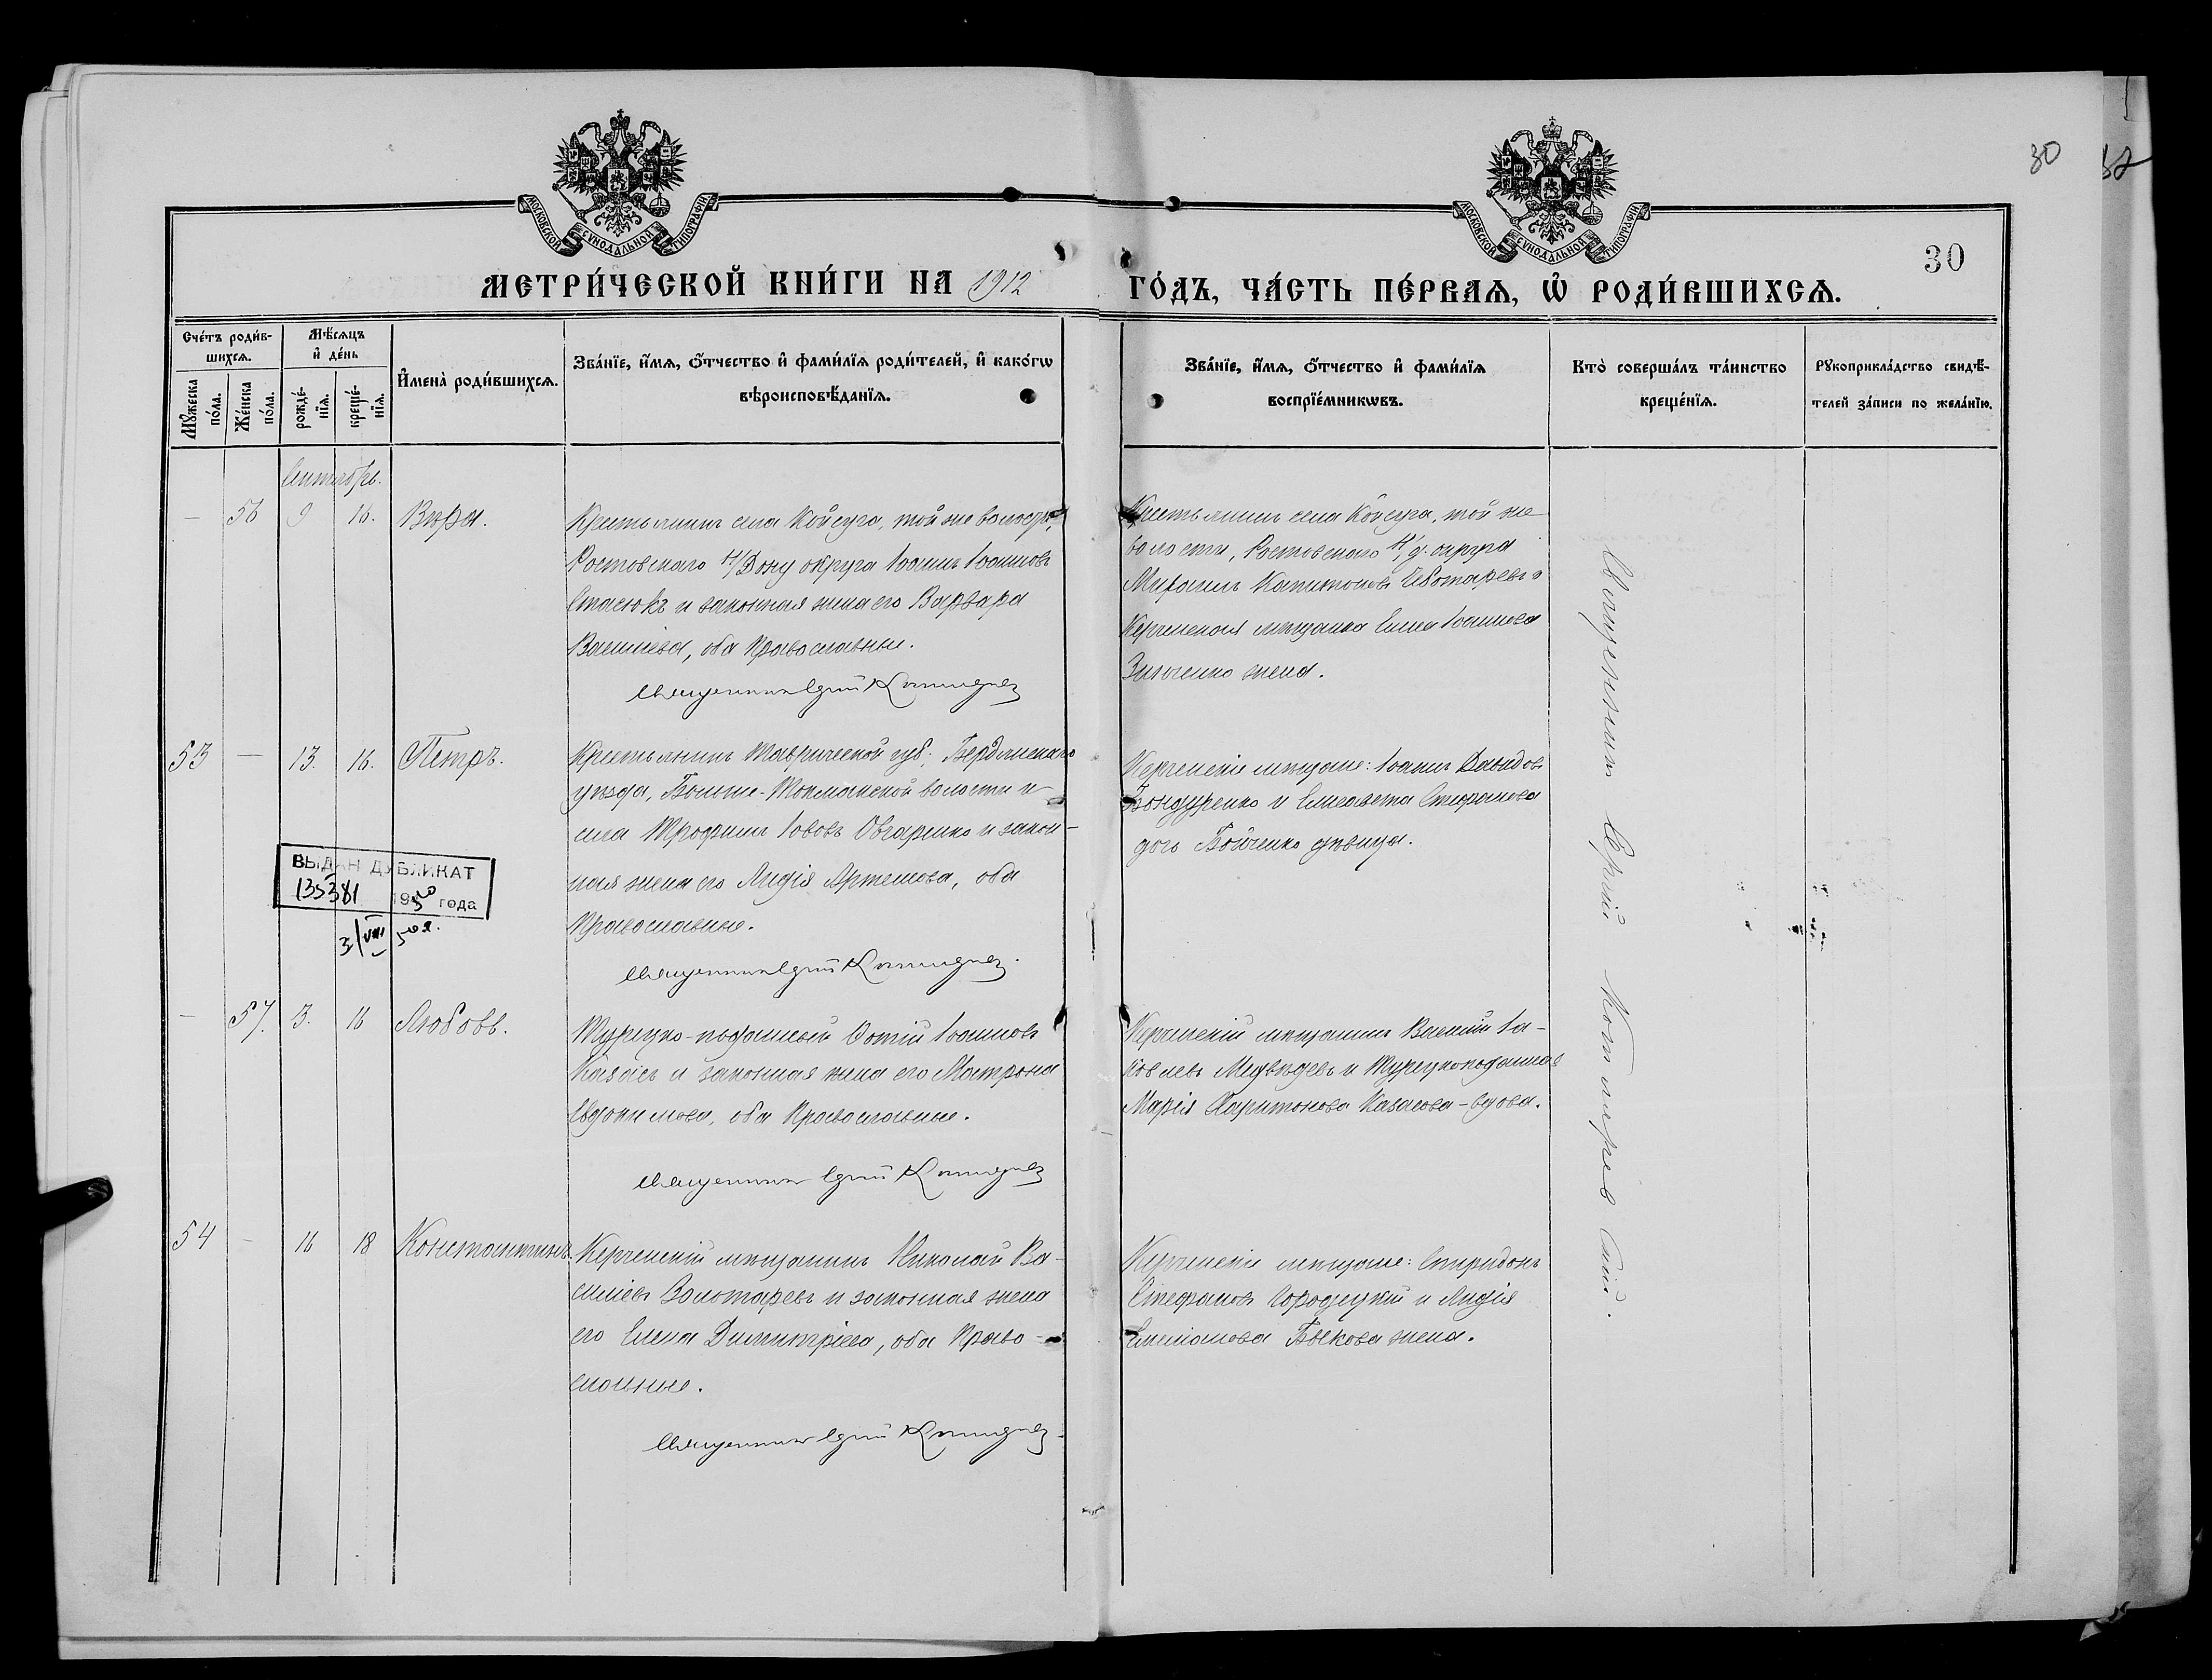 МОСКОВСКОЙ СѴНОДАЛЬНОЙ ТИПОГРАФІИ
МОСКОВСКОЙ СѴНОДАЛЬНОЙ ТИПОГРАФІИ
30
30
МЕТРИ́ЧЕСКОЙ КНИ́ГИ НА 1912 ГО́ДЪ, ЧА́СТЬ ПЕ́РВАѦ, Ѡ҆ РОДИ́ВШИХСѦ.
Сче́тъ роди́в-
шихсѧ.
Мꙋ́жеска
по́ла.
Же́нска
по́ла.
Мѣ́сѧцъ
и҆ де́нь
рожде́-
нїѧ.
креще́-
нїѧ.
И҆мена̀ роди́вшихсѧ.
Зва́нїе, и҆́мѧ, ѻ҆́тчество и҆ фами́лїѧ роди́телей, и҆ како́гѡ
вѣроисповѣ́данїѧ.
Зва́нїе, и҆́мѧ, ѻ҆́тчество и҆ фами́лїѧ
воспрїе́мникѡвъ.
Кто̀ соверша́лъ та́инство
креще́нїѧ.
Рꙋкоприкла́дство свидѣ́-
телей за́писи по жела́нїю.
Сентябрь.
— 56 9 16. Вѣра.
Крестьянинъ села Койсуга, той же волости,
Ростовскаго н/Дону округа Іоаннъ Іоанновъ
Стасюкъ и законная жена его Варвара
Васильева, оба Православные.
Священникъ Сергій
Крестьянинъ села Койсуга, той же
волости, Ростовскаго н/д. округа
Михаилъ Капитоновъ Чеботаревъ и
Керченская мѣщанка Елена Іоаннова
Зинченко жена.
53 — 13. 16. Петръ.
Крестьянинъ Таврической губ., Бердянскаго
уѣзда, Больше-Токмакской волости и
села Трофимъ Іововъ Овчаренко и закон-
ная жена его Лидія Артемова, оба
Православные.
Священникъ Сергій
Керченскіе мѣщане: Іоаннъ Давидовъ
Бондаренко и Елисавета Стефанова
Бойченко дѣвица.
ВЫДАН ДУБЛИКАТ
135381 1950 года
3/VIII 50 г.
— 57. 3. 16 Любовь.
Турецко-подданный Фотій Іоанновъ
Казасъ и законная жена его Матрона
Евдокимова, оба Православные.
Священникъ Сергій
Керченскій мѣщанинъ Василій Іа-
ковлевъ Медвѣдевъ и Турецкоподданная
Марія Харитонова Казасова - вдова.
54 — 16 18 Константинъ.
Керченскій мѣщанинъ Николай Ва-
сильевъ Золотаревъ и законная жена
его Елена Димитріева, оба Право-
славные.
Священникъ Сергій
Керченскіе мѣщане: Спиридонъ
Стефановъ Городецкій и Лидія
Емеліанова Быкова жена.
Священникъ Сергій